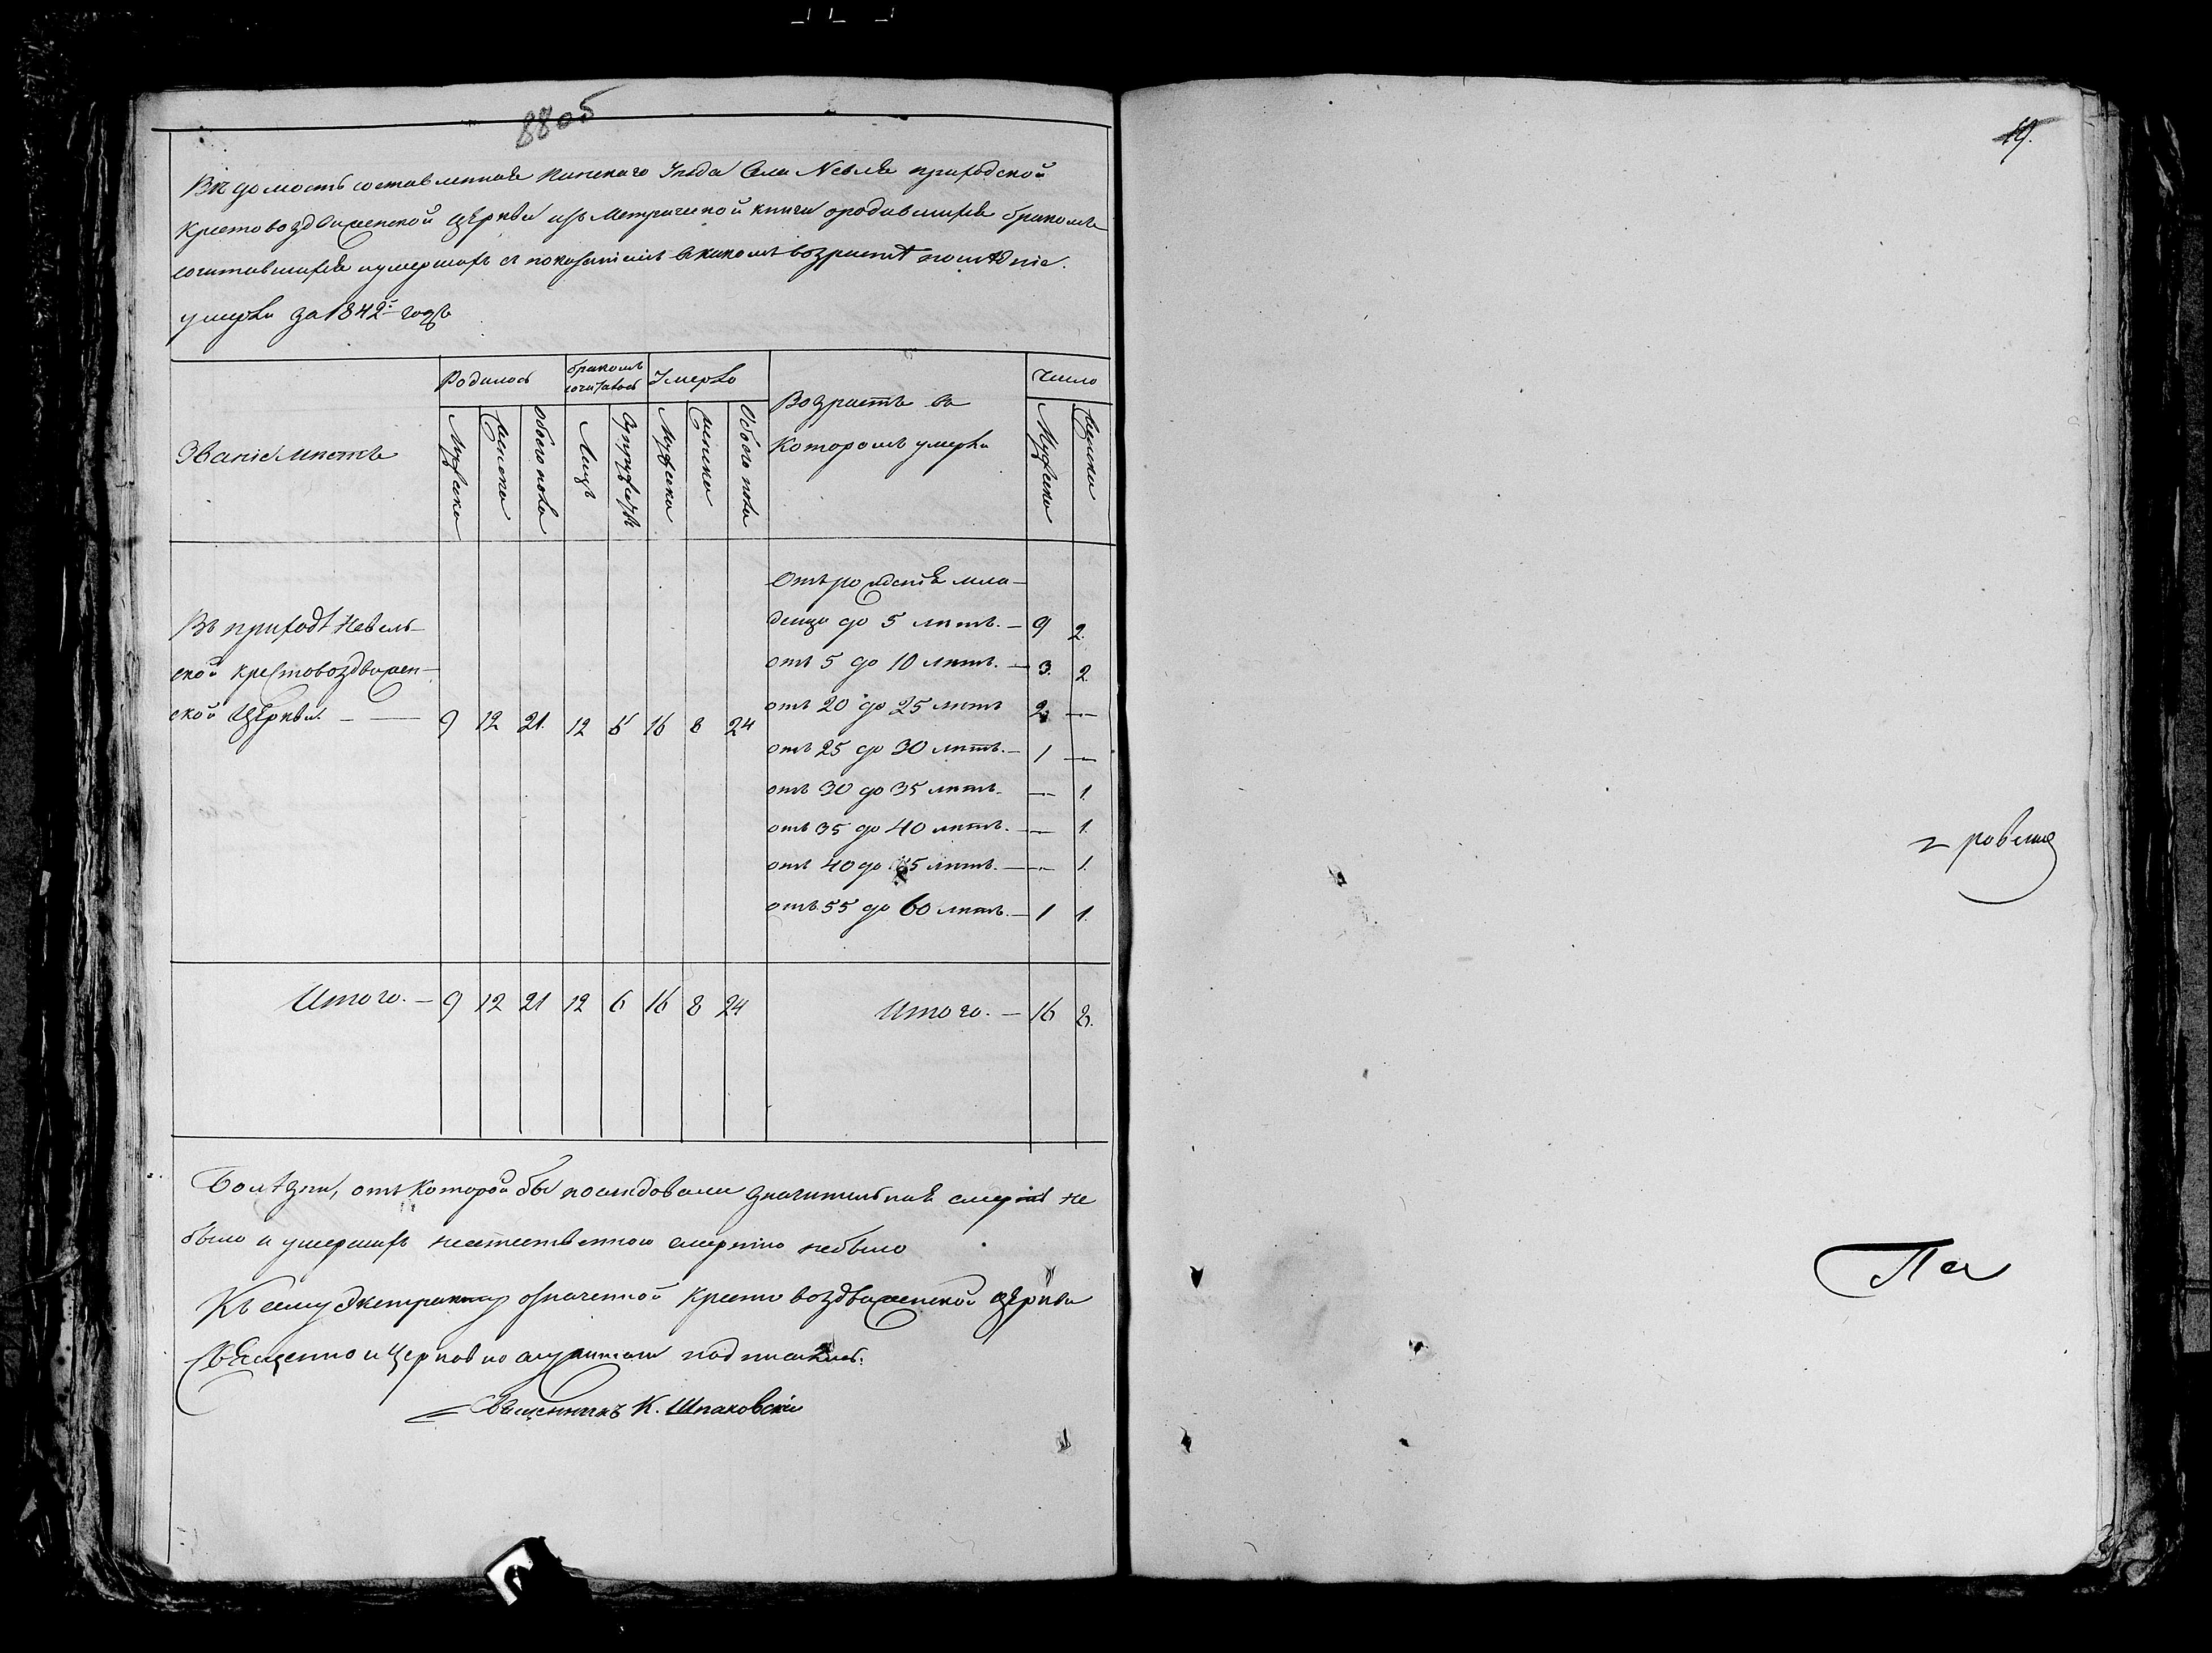 88 об
Вѣдомость составленная Пинскаго Уѣзда Села Невля приходской
Крестовоздвиженской Церкви изъ Метрической книги о родившихся бракомъ
сочитавшихся и умершихъ съ показаніемъ въ какомъ возрастѣ послѣдніе
умерли за 1842й годъ
Званіе мѣстъ
Родилось
бракомъ сочиталось
Умерло
Возрастъ въ
которомъ умерли
Число
Мужеска
Женска
Обоего пола
Лицъ
Супружествъ
Мужеска
Женска
Обоего пола
Мужеска
Женска
Въ приходѣ Невель-
ской Крестовоздвижен-
ской Церкви. — — 9 12 21. 12 6 16 8 24
Отъ рожденія мла-
денца до 5 лѣтъ. — 9 2.
отъ 5 до 10 лѣтъ. — 3. 2.
отъ 20 до 25 лѣтъ 2. —
отъ 25 до 30 лѣтъ. — 1 —
отъ 30 до 35 лѣтъ. — 1.
отъ 35 до 40 лѣтъ. — 1.
отъ 40 до 45 лѣтъ. — 1.
отъ 55 до 60 лѣтъ. — 1 1.
Итого. — 9 12 21 12 6 16 8 24
Итого. — 16 8.
Болѣзни, отъ которой бы послѣдовала значительная смерть не
было и умершихъ неестественною смертію небыло
Къ сему Экстракту означенной Крестовоздвиженской Церкви
Священно и Церковно служители подписались:
Священникъ К. Шпаковскій
89.
Па